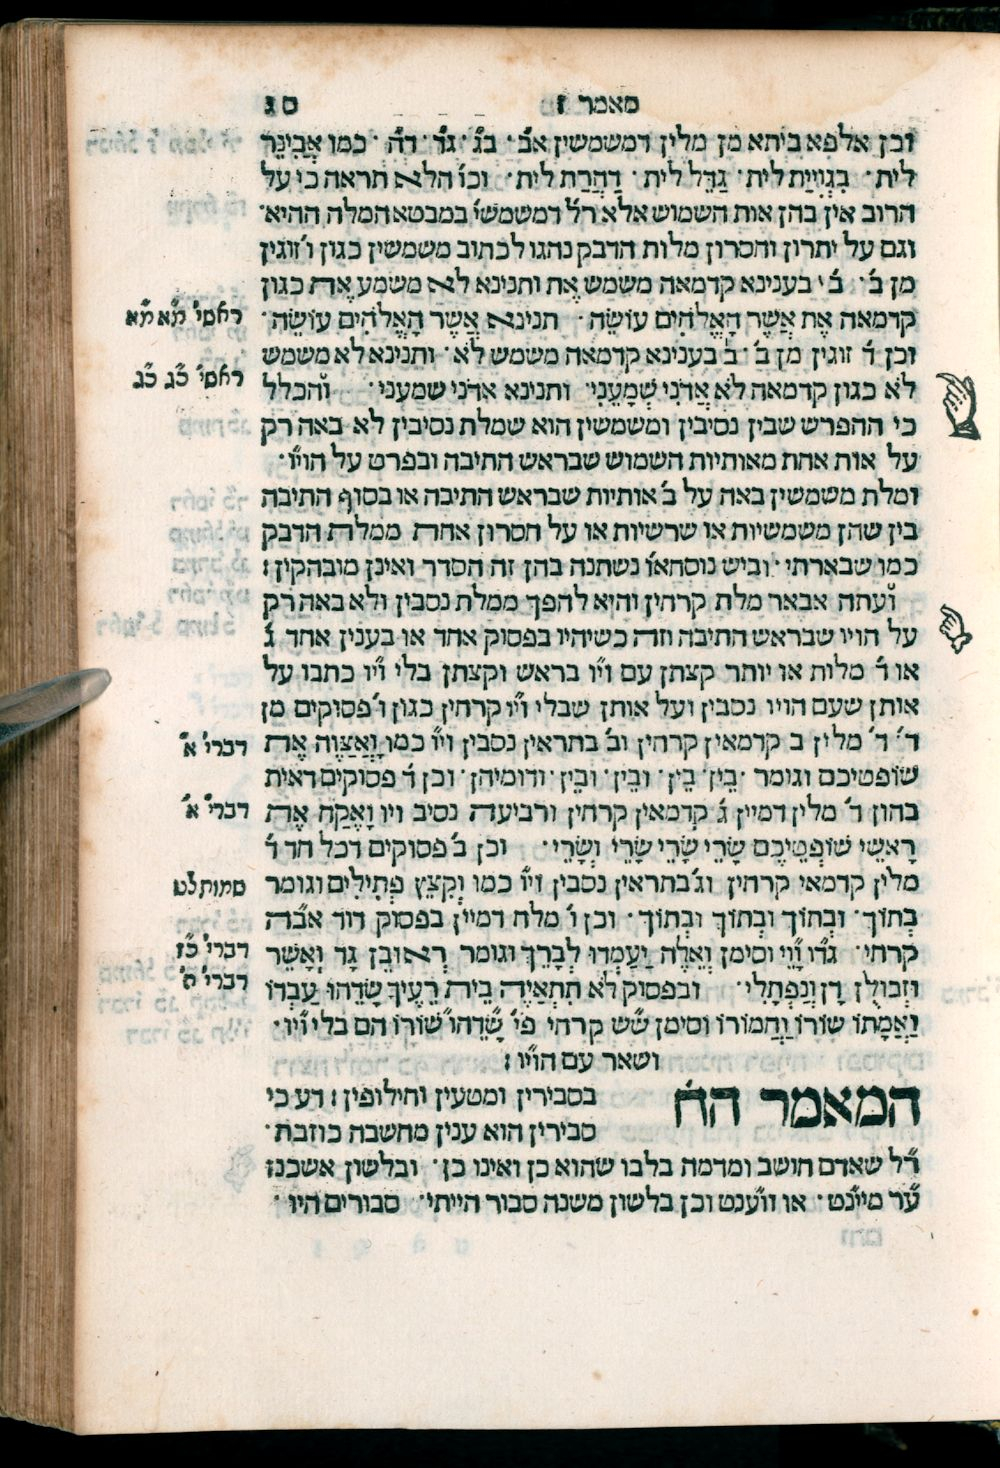 מאמר ז
סג
וכן אלפא ביתא מן מלין דמשמשין א״ב׳ ב״ג׳ ג״ד׳ ד״ה׳ כמו אֲבִינֵר
לית׳ בִּגְוִיַּת לית׳ גַּדֵּל לית׳ דַּהֲרַת לית׳ וכו׳ הלא תראה כי על
הרוב אין בהן אות השמוש אלא ר״ל דמשמשי׳ במבטא המלה ההיא׳
וגם על יתרון וחסרון מלות הדבק נהגו לכתוב משמשין כגון ו׳ זוגין
מן ב׳ ב׳ בענינא קדמאה משמש אֶת ותנינא לא משמע אֶת כגון
קדמאה אֶת אֲשֶׁר הָאֱלֹהִים עוֹשֶׂה׳ תנינא אֲשֶׁר הָאֱלֹהִים עוֹשֶׂה׳
ראשי׳ מ״א מ״א
וכן ד׳ זוגין מן ב׳ ב׳ בענינא קדמאה משמש לֹא׳ ותנינא לא משמש
לֹא כגון קדמאה לֹא אֲדֹנִי שְׁמָעֵנִי׳ ותנינא אדני שמעני׳ והכלל
ראשי׳ כ״ג כ״ג
כי ההפרש שבין נסיבין ומשמשין הוא שמלת נסיבין לא באה רק
על אות אחת מאותיות השמוש שבראש התיבה ובפרט על הוי״ו׳
ומלת משמשין באה על ב׳ אותיות שבראש התיבה או בסוף התיבה
בין שהן משמשיות או שרשיות או על חסרון אחת ממלת הדבק
כמו שבארתי׳ וביש נוסחאו׳ נשתנה בהן זה הסדר ואינן מובהקין:
ועתה אבאר מלת קרחין והיא להפך ממלת נסבין ולא באה רק
על הויו שבראש התיבה וזה כשיהיו בפסוק אחד או בענין אחד ג׳
או ד׳ מלות או יותר קצתן עם וי״ו בראש וקצתן בלי וי״ו כתבו על
אותן שעם הויו נסבין ועל אותן שבלי וי״ו קרחין כגון ו׳ פסוקים מן
ד׳ ד׳ מלין ב קדמאין קרחין וב׳ בתראין נסבין וי״ו כמו וָאֲצַוֶּה אֶת
דברי׳ א׳
שופטיכם וגומר׳ בֵּין׳ בֵּין׳ ובֵין׳ ובֵין׳ ודומיהן׳ וכן ד׳ פסוקים דאית
בהון ד׳ מלין דמיין ג׳ קדמאין קרחין ורביעה נסיב ויו וָאֶקַּח אֶת
דברי׳ א׳
רָאשֵׁי שׁוֹפְטֵיכֶם שָׂרֵי שָׂרֵי שָׂרֵי וְשָׂרֵי׳ וכן ב׳ פסוקים דכל חד ד׳
מלין קדמאי קרחין וג׳ בתראין נסבין וי״ו כמו וְקִצֵּץ פְּתִילִים וגומר
שמות לט
בְּתוֹךְ׳ ובְתוֹךְ ובְתוֹךְ ובְתוֹךְ׳ וכן ו׳ מלח דמיין בפסוק דוד אב״ה
קרחי׳ גד״ו וָוֵי וסימן וְאֵלֶה יַעַמְדוּ לְבָרֵךְ וגומר רְאוּבֵן גָּד וְאָשֵׁר
דברי׳ כ״ז
וזְבוּלֻן דָּן וְנַפְתָּלִי׳ ובפסוק לֹא תִתְאַוֶּה בֵּית רֵעֶיךָ שָׂדֵהוּ עַבְדּוֹ
דברי׳ ה׳
וַאֲמָתוֹ שׁוֹרוֹ וַחֲמוֹרוֹ וסימן ש״ש קרחי׳ פי׳ שָׂ״דֵהוּ שׁ״וֹרוֹ הם בלי וי״ו׳
ושאר עם הוי״ו:
המאמר הח׳
בסבירין ומטעין וחילופין: דע כי
סבירין הוא ענין מחשבה כוזבת׳
ר״ל שאדם חושב ומדמה בלבו שהוא כן ואינו כן׳ ובלשון אשכנז
ע״ר מיי״נט׳ או וו״ענט וכן בלשון משנה סבור הייתי׳ סבורים היו׳